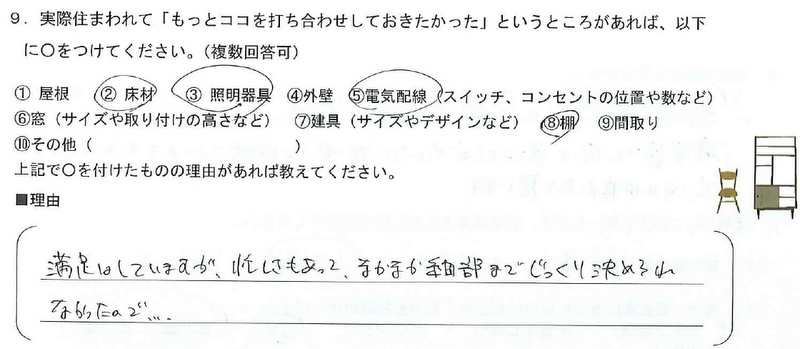 9．実際住まわれて「もっとココを打ち合わせしておきたかった」というところがあれば、以下
に○をつけてください。（複数回答可）
① 屋根　② 床材　③ 照明器具　④外壁　⑤電気配線（スイッチ、コンセントの位置や数など）
⑥窓（サイズや取り付けの高さなど）　⑦建具（サイズやデザインなど）　⑧棚　⑨間取り
⑩その他（　　　　　　　　　　　　）
上記で○を付けたものの理由があれば教えてください。
■理由
満足はしていますが、忙しさもあって、なかなか細部までじっくり決められ
なかったので…。